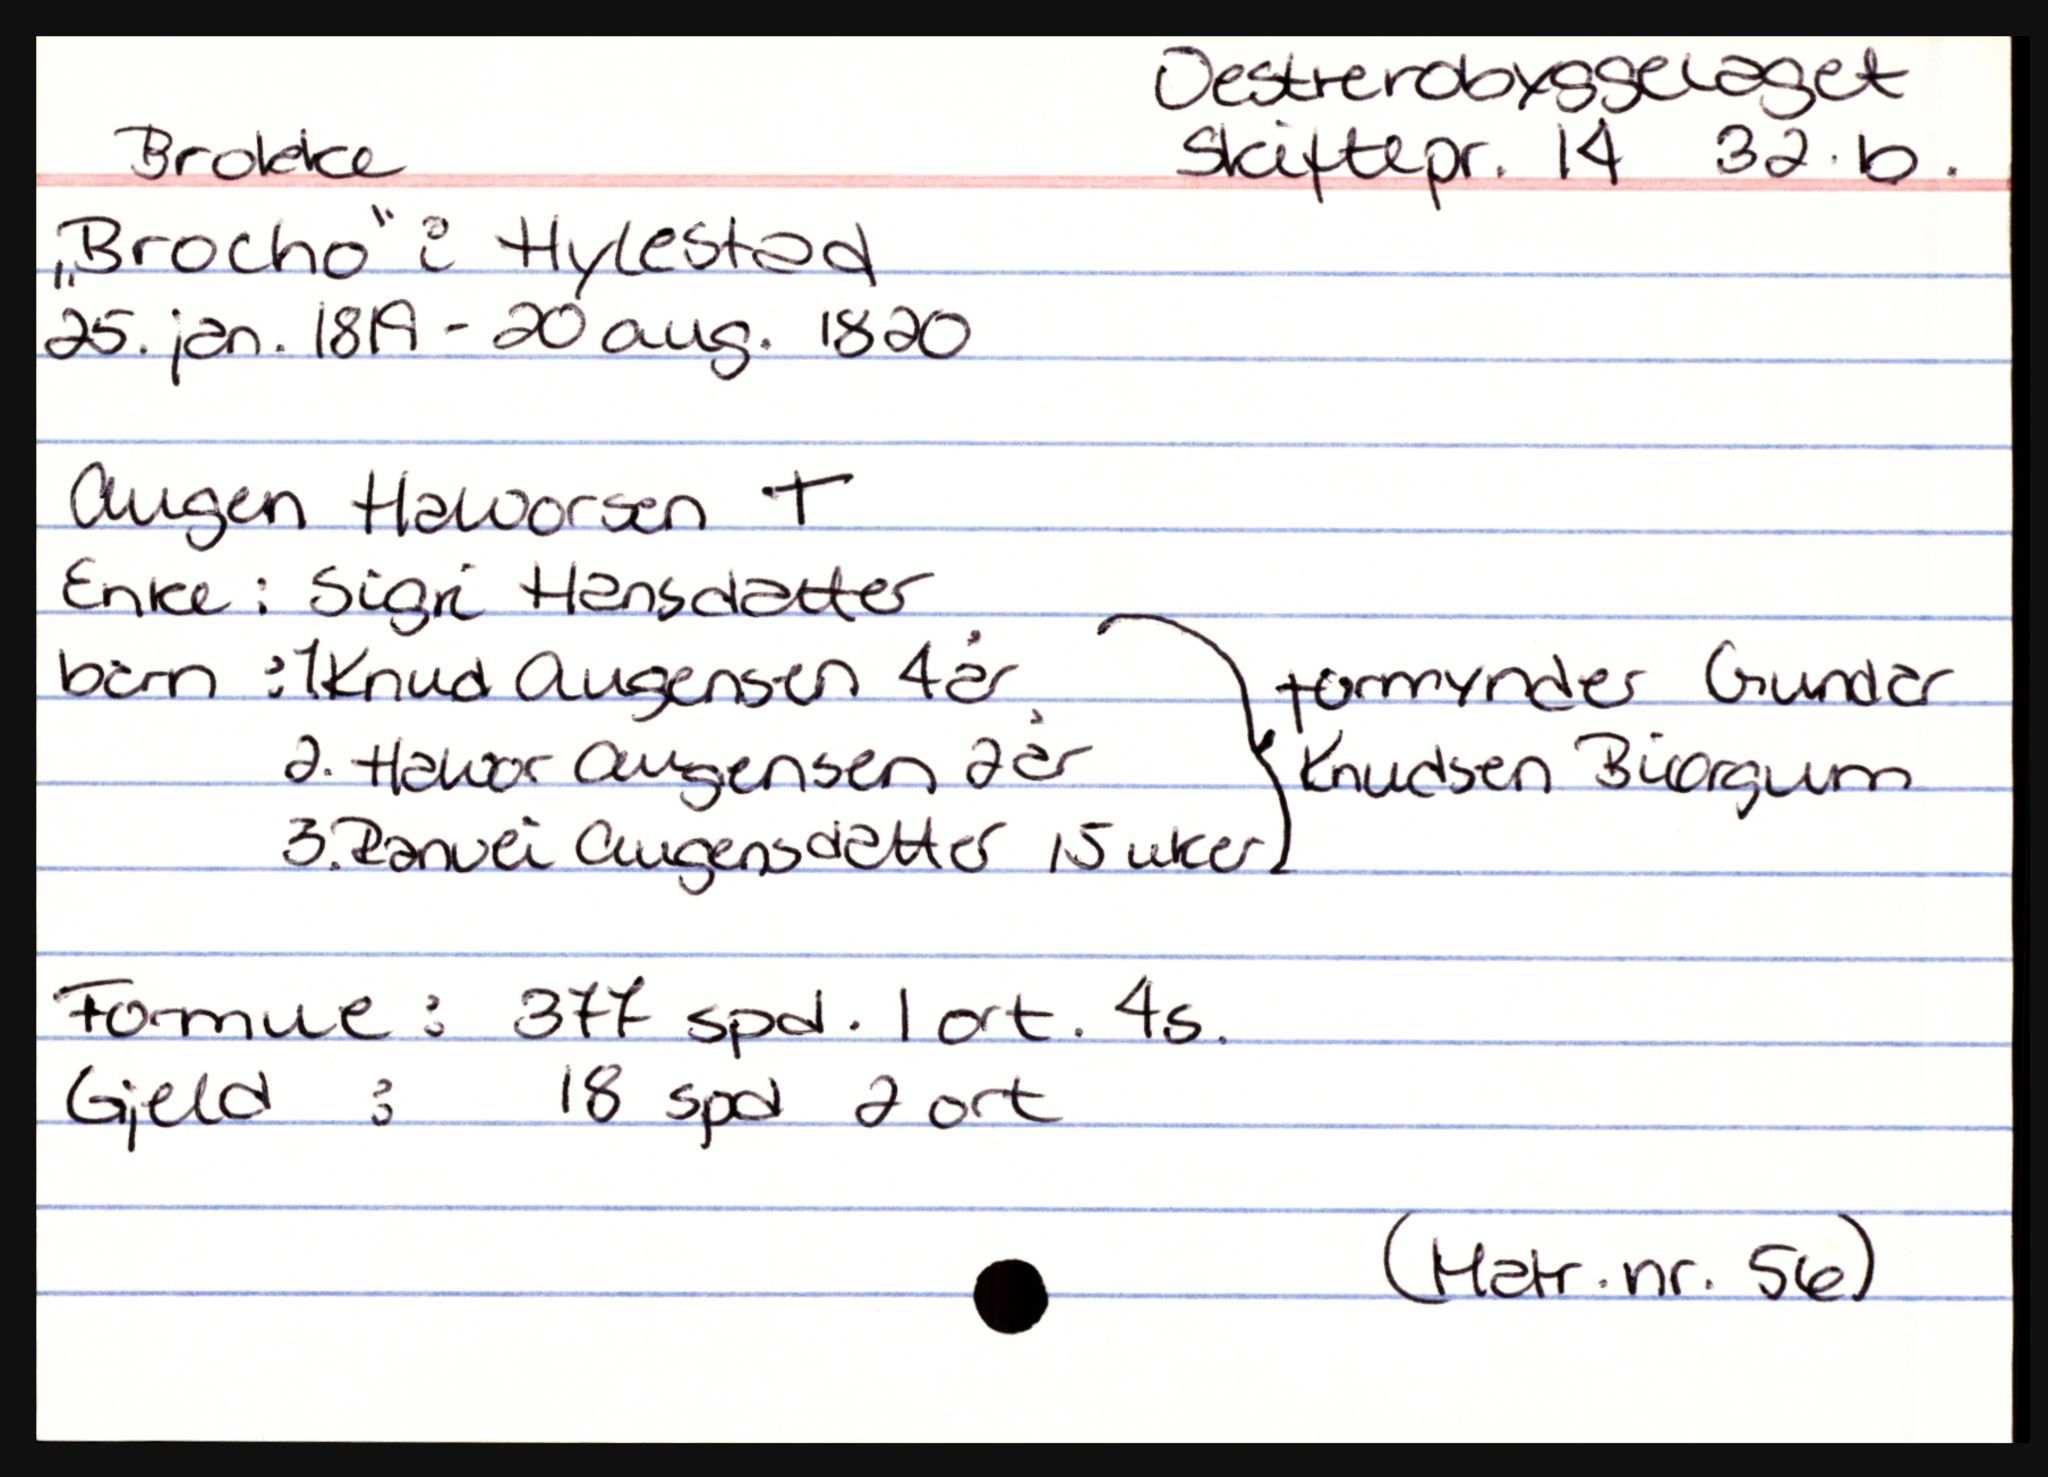 Oestrerobyggelaget
Brokke
Skiftepr. 14 32.b.
„Brocho" i Hylestad
25. jan. 1819 - 20 aug. 1820
Augen Halvorsen +
Enke : Sigri Hansdatter
barn : 1 Knud Augensen 4 år
2. Halvor Augensen 2 år
3. Ranvei Augensdatter 15 uker
formynder Gundar
Knudsen Biorgum
Formue : 377 spd. 1 ort. 4s.
Gjeld : 18 spd 2 ort
(Matr. nr. 56)